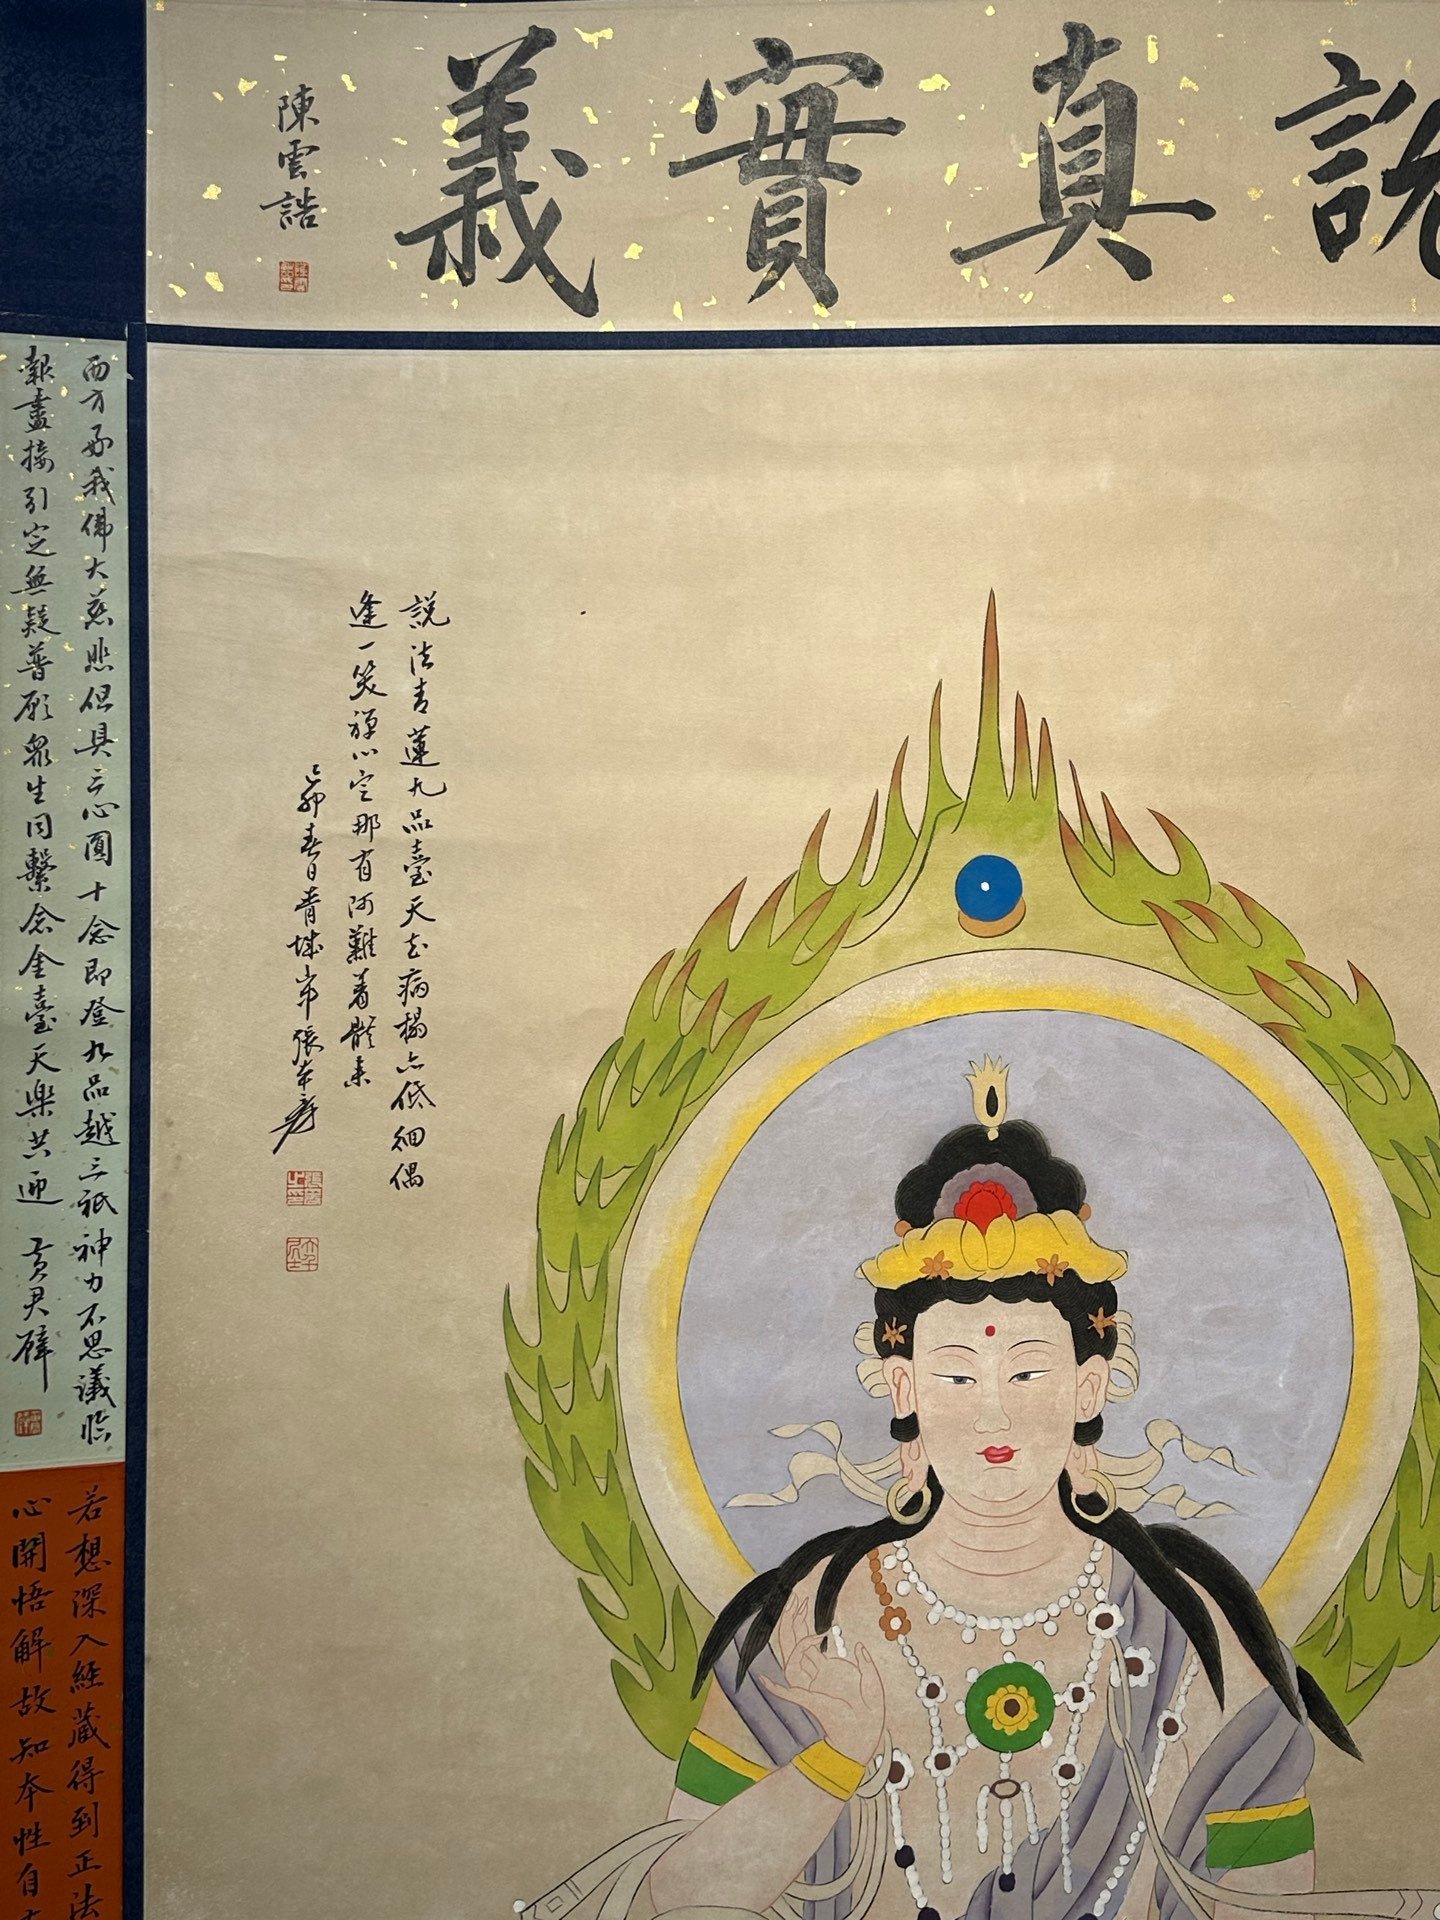 說真實義
陳雲誥
說法青蓮九品臺天花病榻亦低徊偶
逢一笑禪心定那有阿難着體來
己卯春日青城山中張大千爰
西方好我佛大慈悲但具三心圓十念即登九品越三祇神力不思議臨
報盡接引定無疑普願眾生同繫念金臺天樂共迎 黃君璧
若想深入經藏得到正法
心開悟解故知本性自